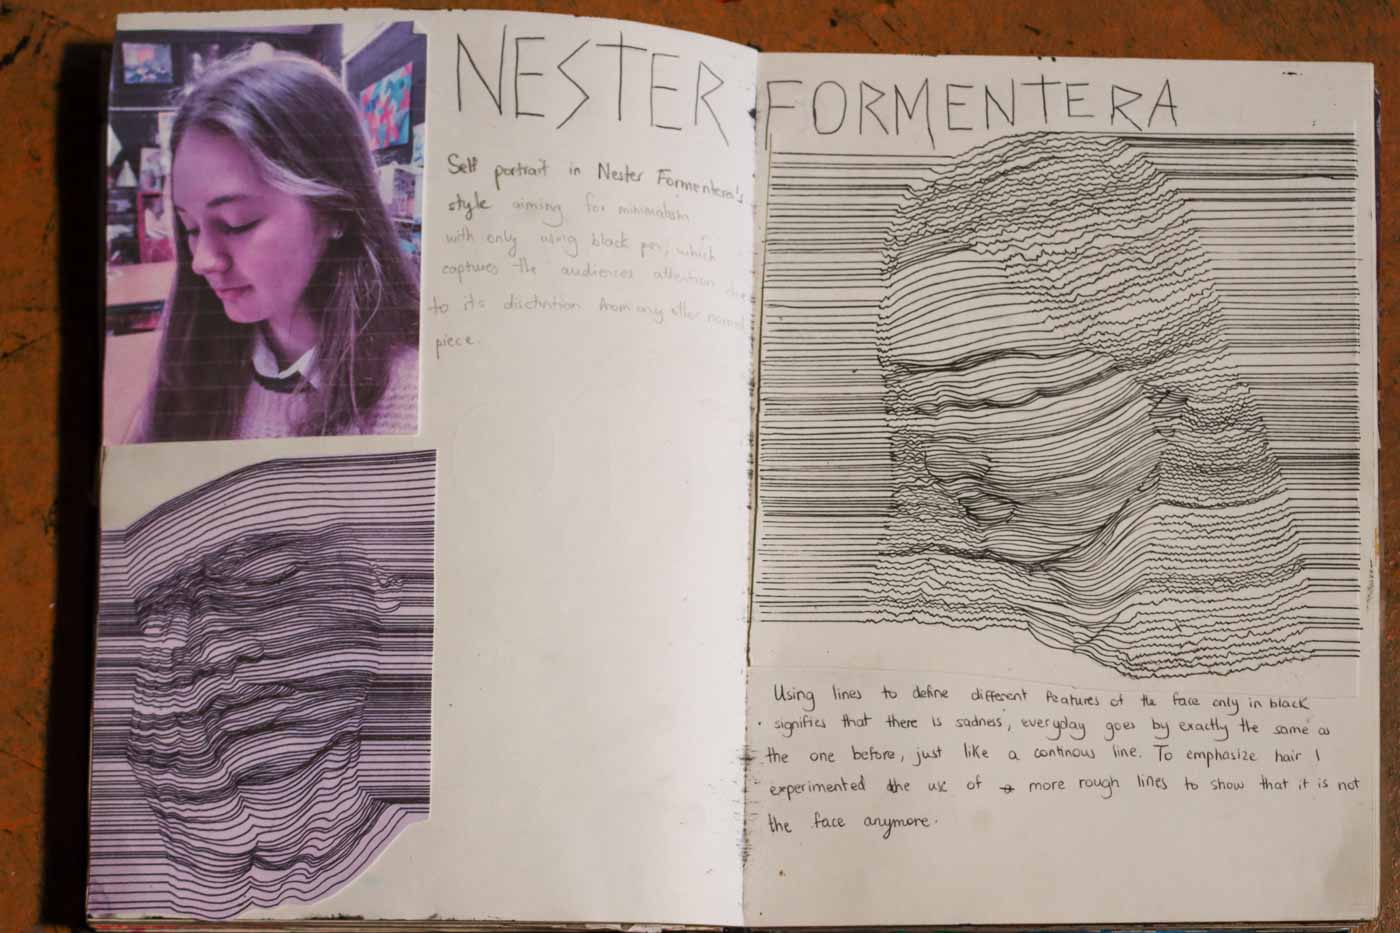 NESTER FORMENTERA
Self portrait in Nester Formentera's
style aiming for minimalism
with only using black pen, which
captures the audiences attention due
to its distinction from any other normal
piece.
Using lines to define different features of the face only in black
signifies that there is sadness, everyday goes by exactly the same as
the one before, just like a continous line. To emphasize hair I
experimented the use of more rough lines to show that it is not
the face anymore.